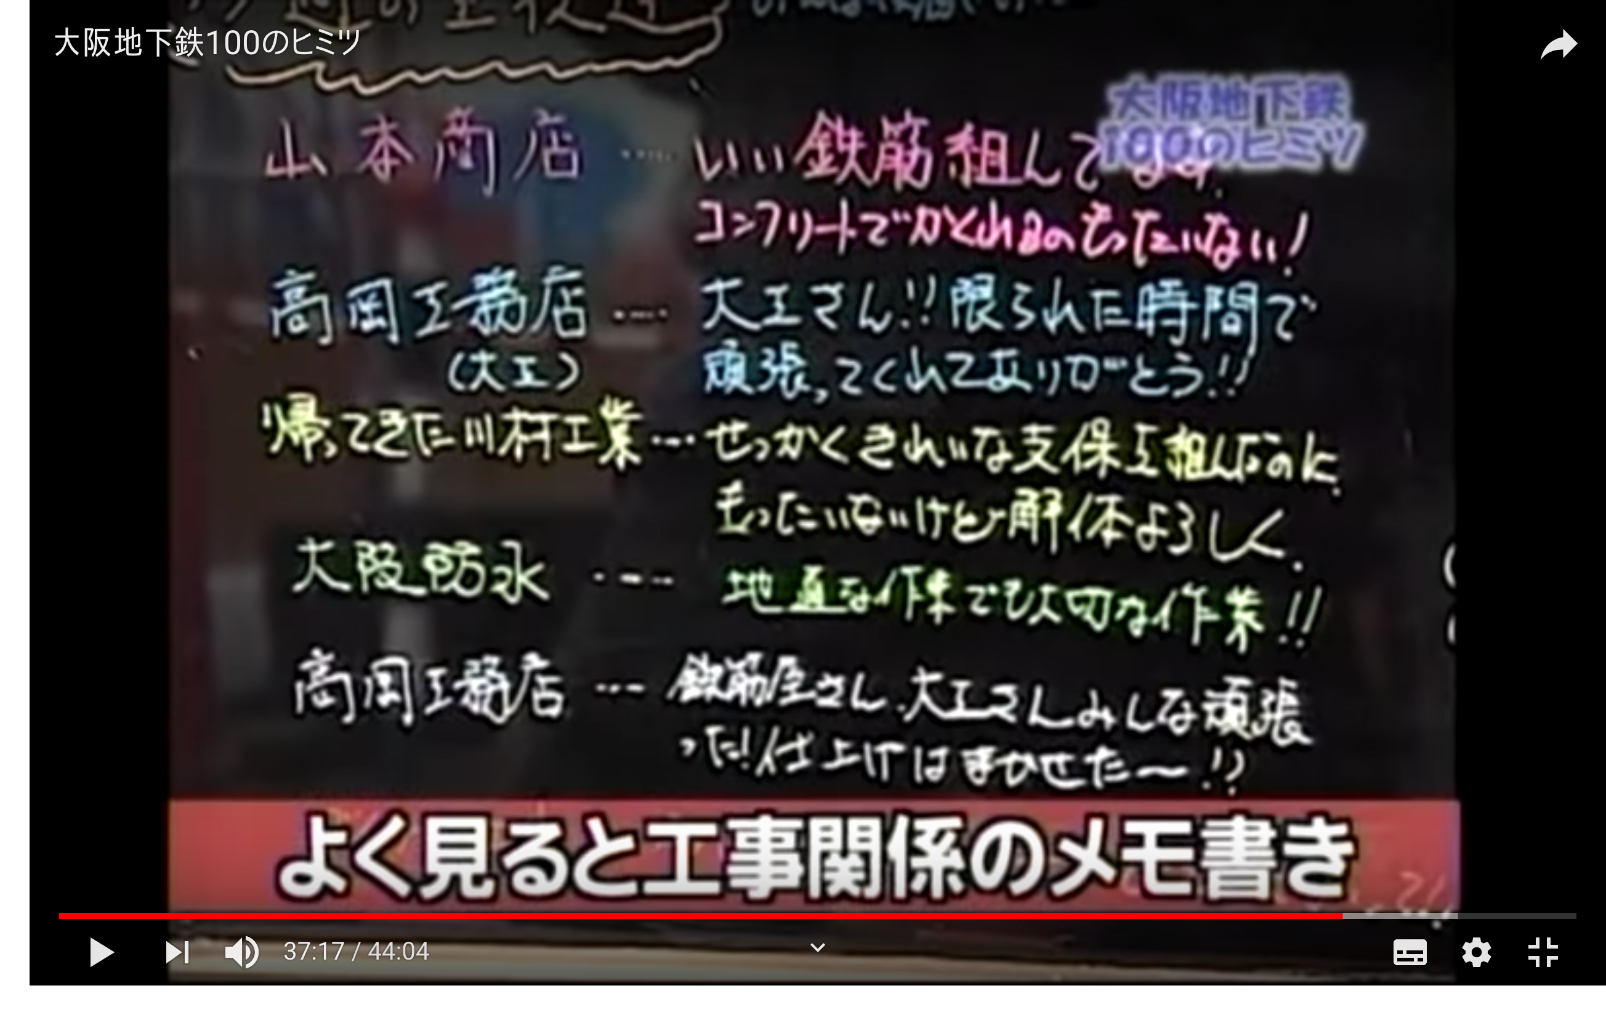 大阪地下鉄100のヒミツ
大阪地下鉄
100のヒミツ
山本商店 ････ いい鉄筋組んでます.
コンクリートでかくれるのもったいない！
高岡工務店 ････ 大工さん!!限られた時間で
(大工) 頑張ってくれてありがとう!!
帰ってきた川村工業 ･･･ せっかくきれいな支保工組んだのに
もったいないけど解体よろしく.
大阪防水 ････ 地道な作業でも大切な作業!!
高岡工務店 ･･･ 鉄筋屋さん、大工さんみんな頑張
った!仕上げはまかせた〜!!
よく見ると工事関係のメモ書き
37:17 / 44:04